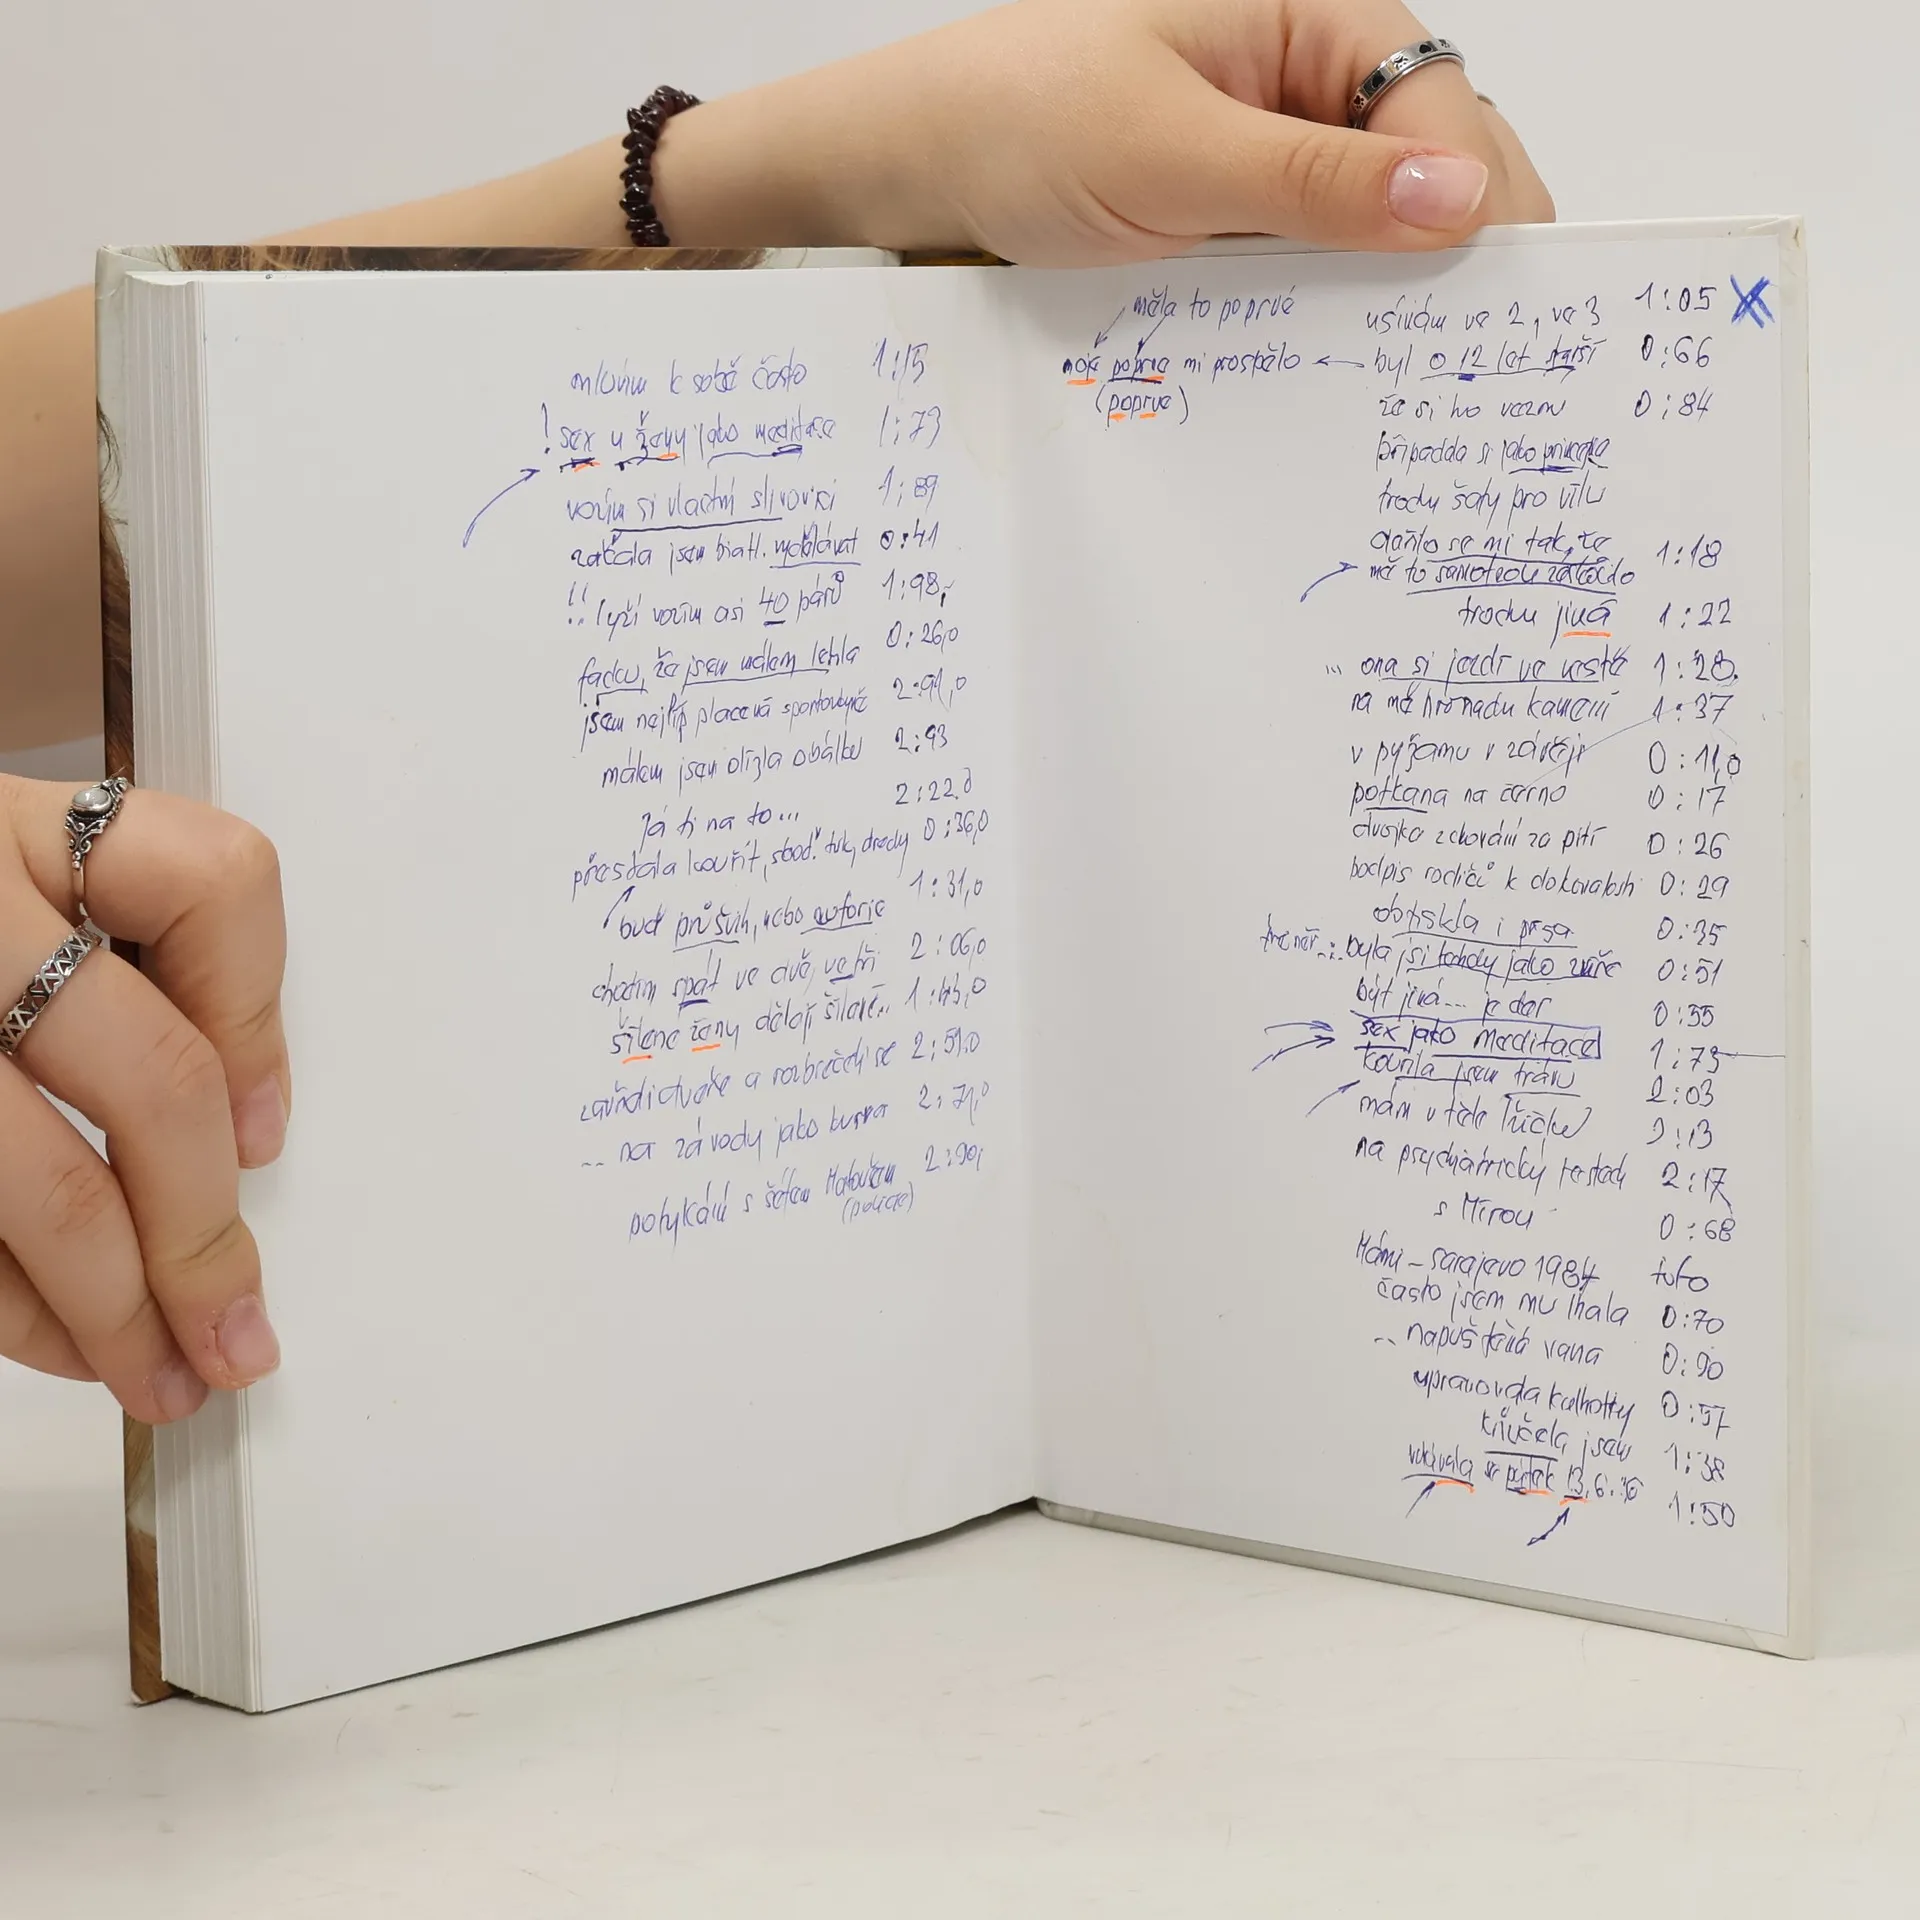 mluvím k sobě často 1:15
! sex u ženy jako meditace 1:73
vozím si vlastní slivovici 1:89
začala jsem biatl. vydělávat 0:41
!! lyží vozím asi 40 párů 1:98,
facku, že jsem málem lehla 0:26,0
jsem nejlíp placená sportovkyně 2:91,0
málem jsem olízla obálku 2:93
já ti na to... 2:22.0
přestala kouřit, dredy 0:36,0
buď průšvih, nebo euforie 1:31,0
chodím spát ve dvě, ve tři 2:06,0
šílené ženy dělají šílené... 1:43,0
a rozbrečely se 2:51.0
... na závody jako kurva 2:71,0
potykání s šéfem 2:90,
(policie)
měla to poprvé
moje poprvé mi prospělo
(poprvé)
usínám ve 2, ve 3 1:05
byl o 12 let starší 0:66
že si ho vezmu 0:84
připadda si jako princezna
trochu šaty pro vílu
dařilo se mi tak, že 1:18
mě to samotnou zaskočilo
trochu jiná 1:22
... ona si jezdí ve vestě 1:28.
na mě hromadu kamení 1:37
v pyžamu v závěji 0:11,0
potkana na černo 0:17
dvojka z chování za pití 0:26
podpis rodičů k dokonalosti 0:29
obtiskla i prsa 0:35
trenér...: byla jsi tehdy jako zvíře 0:51
být jiná... je dar 0:55
sex jako meditace 1:73
kouřila jsem trávu 2:03
mám v těle 2:13
na psychiatrický testech 2:17
s Mírou 0:68
Mámi - sarajevo 1984 foto
často jsem mu lhala 0:70
... napuštěná vana 0:90
upravovala kalhotky 0:57
kňučela jsem 1:38
vdávala se pátek 13.6. 1:50